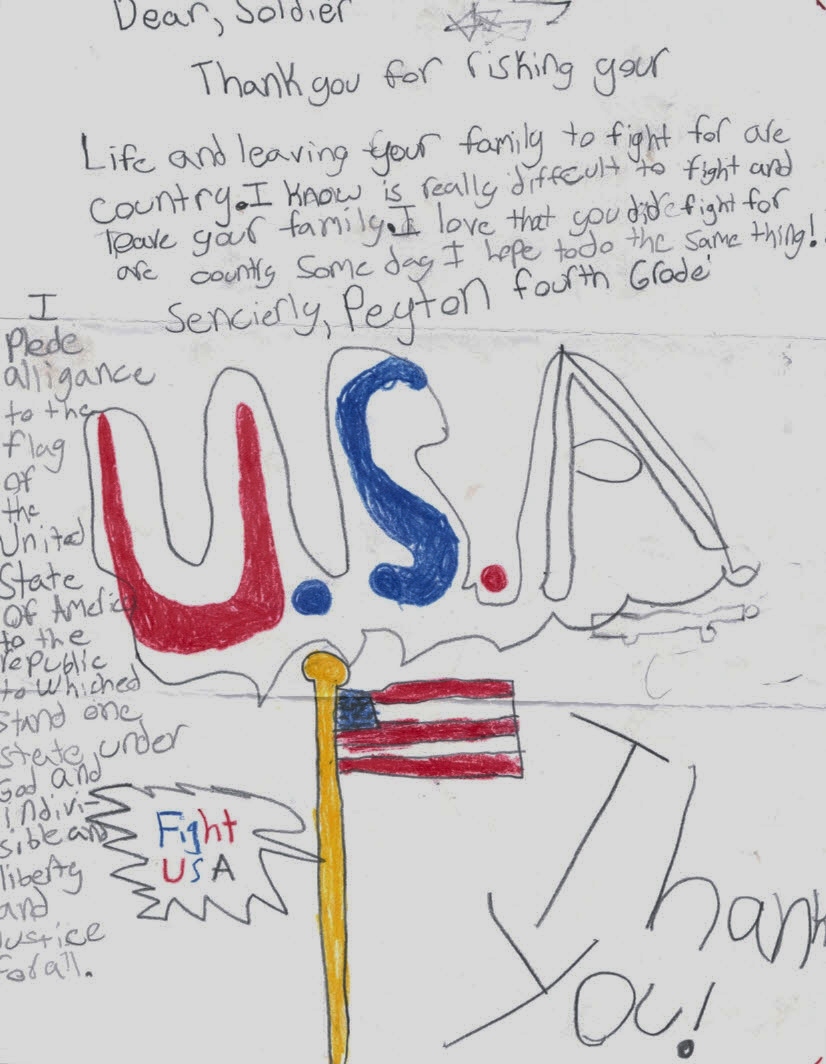 Dear, Soldier
Thank you for risking your
Life and leaving your family to fight for are
country. I know is really difficult to fight and
leave your family. I love that you did fight for
are country some day I hope to do the same thing!
Sencierly, Peyton fourth Grade
I
Plede
alligance
to the
flag
of
the
United
State
Of America
to the
republic
to Whiched
Stand one
state, under
God and
indivi-
sible and
liberty
and
Justice
for all.
U.S.A
Fight
USA
Thank
You!